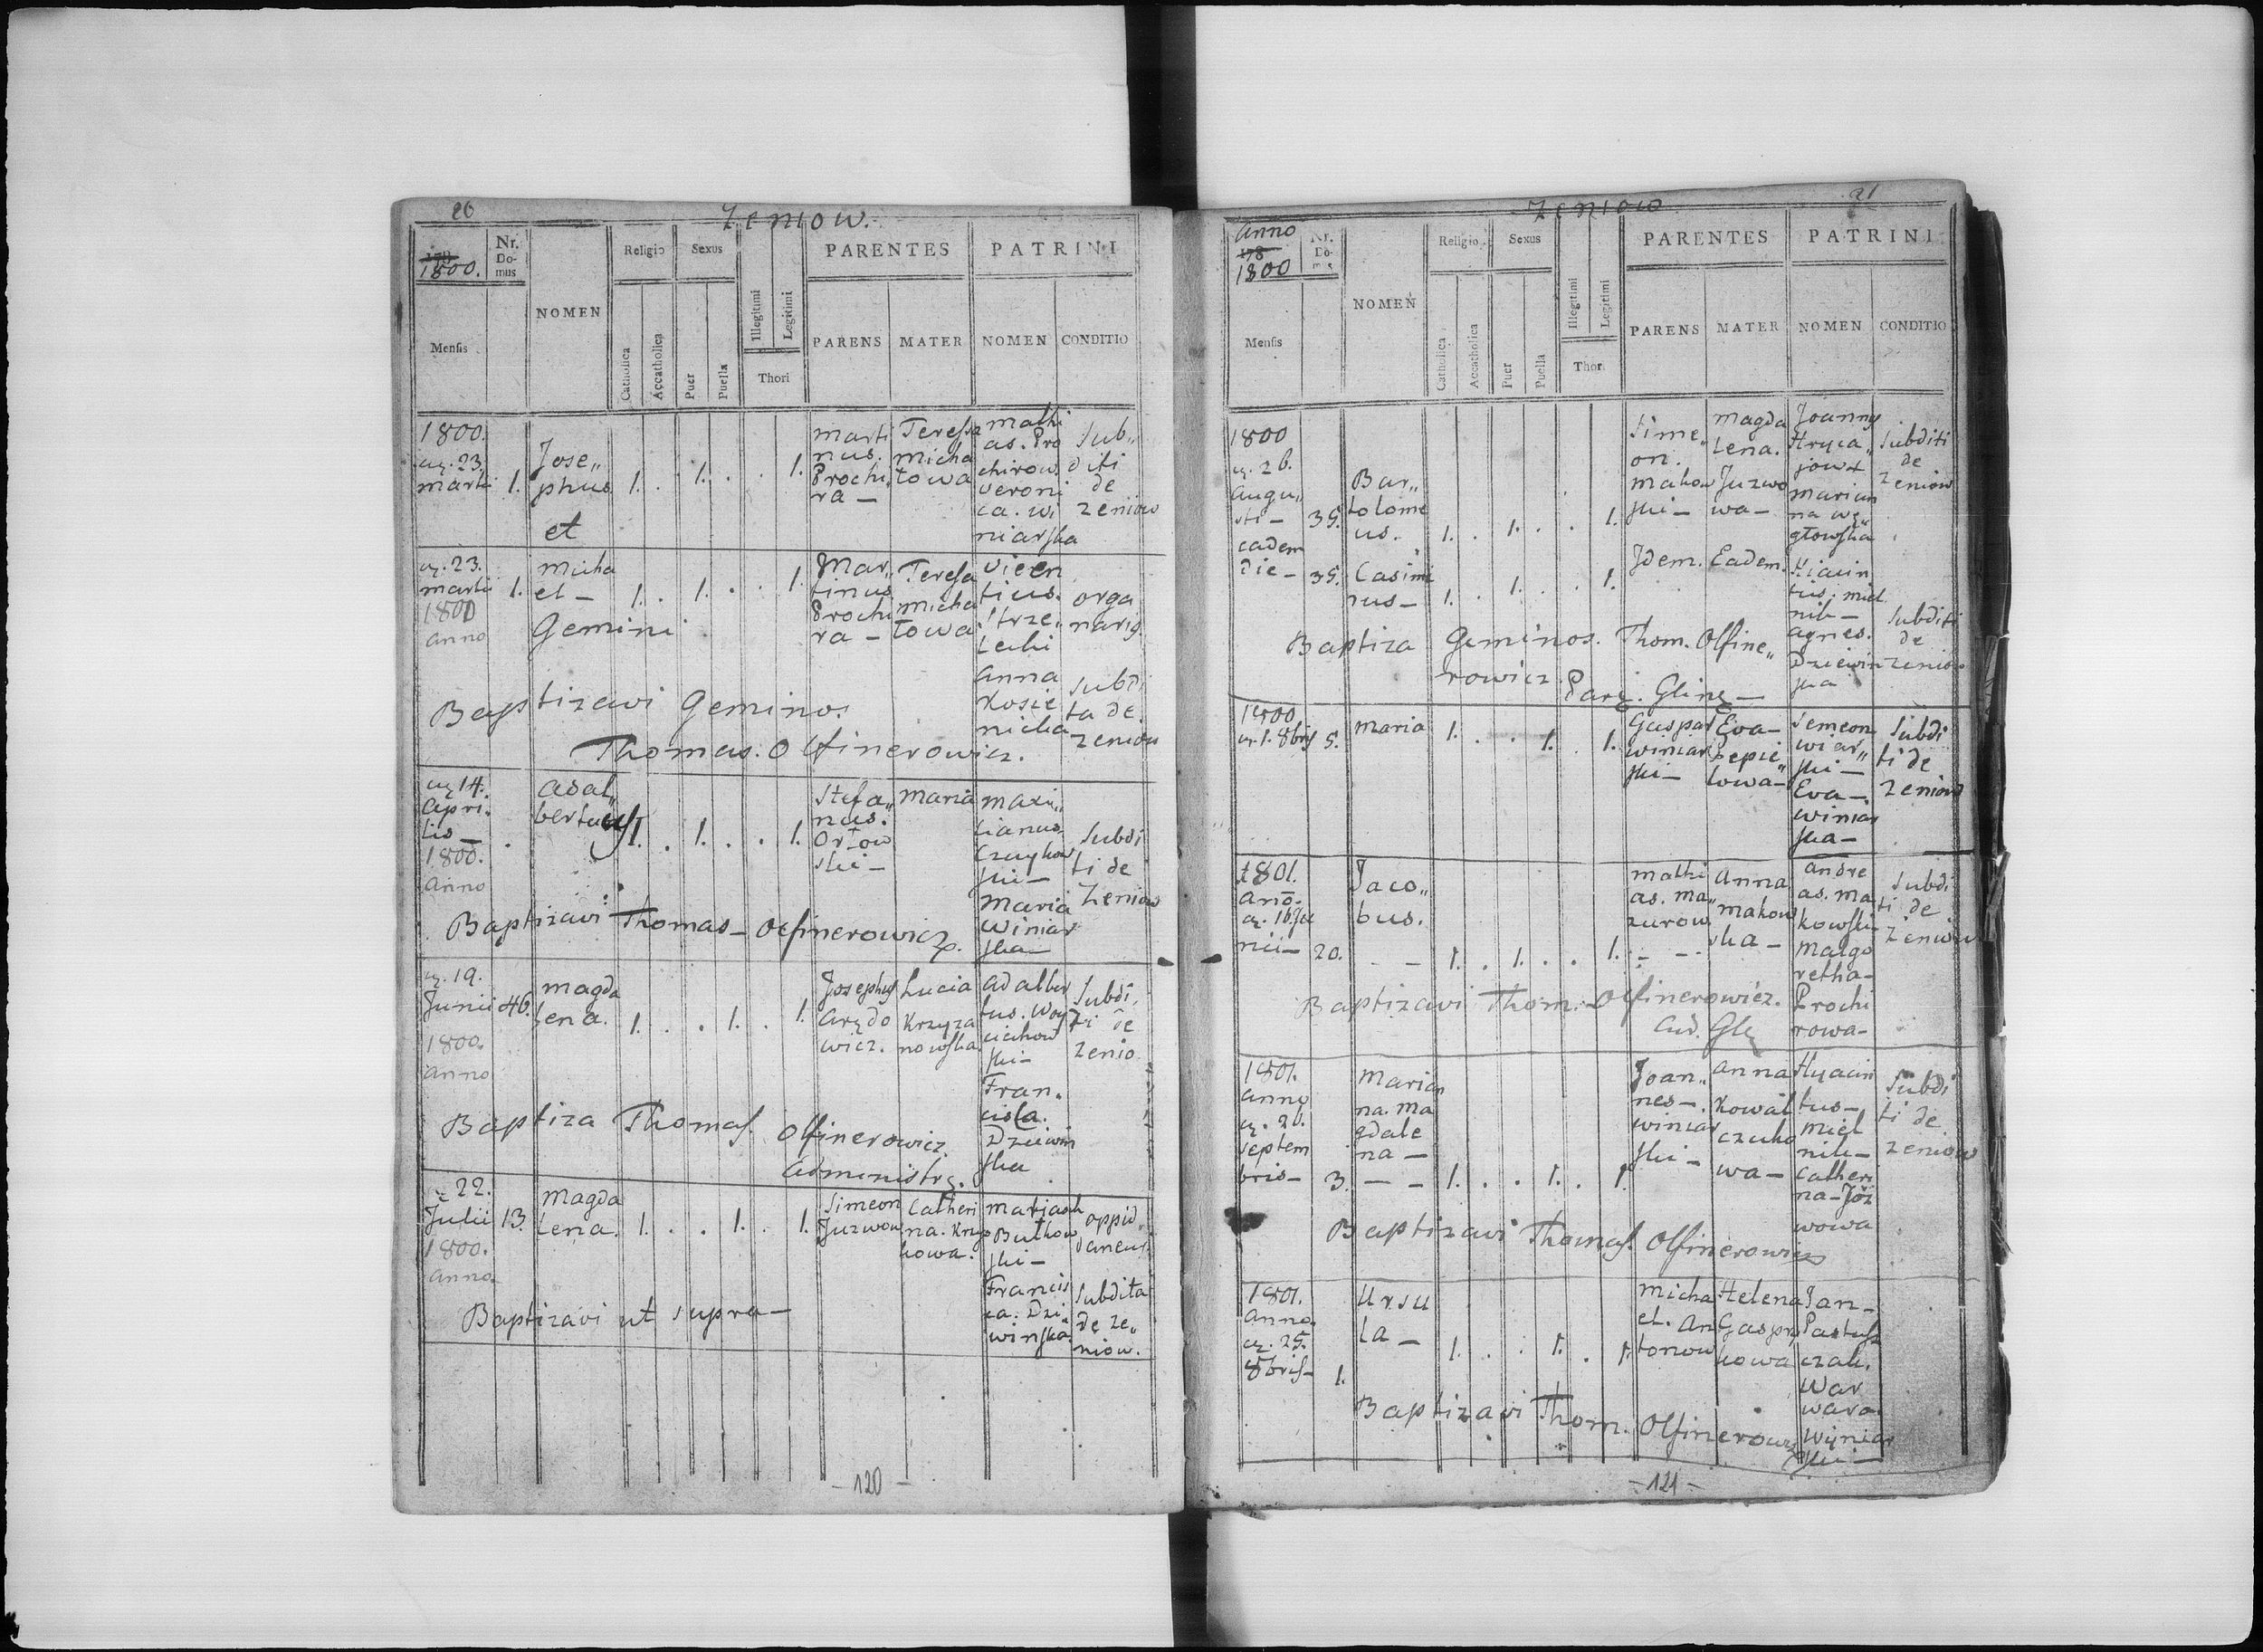 20
Zeniow.
178
1800.
Nr. Domus
Religio
Sexus
PARENTES
PATRINI
Mensis
NOMEN
Catholica
Accatholica
Puer
Puella
Illegitimi
Legitimi
Thori
PARENS
MATER
NOMEN
CONDITIO
1800. 23. martii 1. Josephus 1. . 1. . . 1. Martinus. Prochira — Teressa michatowa mathias. Prochirow. veronica. winiarska Subditi de zeniow
et
23. martii 1800 anno 1. Michael — 1. . 1. . . 1. Martinus Prochira — Teresa michatowa vicentius. Strzelecki organaris
Gemini
anna Kosienicka subdita de zeniow
Baptizavi Geminos
Thomas. Olfinerowicz.
14. aprilis — 1800. anno . adalbertus 1. . 1. . . 1. Stefanus. Orłowski — Maria maxi„lianus Czuykowski — Maria Winiarska — Subditi de Zeniow
Baptizavi Thomas — Olfinerowicz.
19. Junii 1800. anno 46. magdalena. 1. . . 1. . 1. Josephus arędowicz. Lucia Krzyzanowska adalbertus. Woyciechowski — Francisca. Dziewinska Subditi de zenio
Baptiza Thomas. Olfinerowicz.
administr.
22. Julii 1800. anno 13. Magdalena. 1. . . 1. . 1. Simeon Juzwow Catherina. Kryskowa. matiash Butkowski — Francisca. Dziwinska. oppidaneus subdita de zeniow.
Baptizavi ut supra —
— 120 —
21
Zeniow
Anno
178
1800
Nr. Domus
Religio
Sexus
PARENTES
PATRINI
Mensis
NOMEN
Catholica
Accatholica
Puer
Puella
Illegitimi
Legitimi
Thori
PARENS
MATER
NOMEN
CONDITIO
1800 26. augusti — 35. Bartolomeus. 1. . 1. . . 1. Simeon. makowski — magdalena. Juzwowa — Joannes Hrycajow + marianna węgłowska Subditi de zeniow
eadem die — 35. Casimirus — 1. . 1. . . 1. Idem. Eadem. Hiacintus. mielnik — agnes. Dziewinska Subditi de zeniow
Baptiza Geminos. Thom. Olfine„
rowicz. Par. Glinę —
1800 1. 8bris 5. Maria 1. . . 1. . 1. Gaspar winiarski — Eva — Sepielowa — Semeon wiarski — Eva — winiarska — Subditi de Zeniow
1801. ano. 16 Junii — 20. Jacobus. — — 1. . 1. . . 1. mathias. mazurow anna makowska — andreas. makowski — malgoretha — Prochirowa — Subditi de zeniow
Baptizavi Thom. Olfinerowicz.
1801. anno 26. septembris — 3. Marianna. magdalena — — — 1. . . 1. . 1. Joannes — winiarski — anna Kowalczukowa — Hyacintus — mielnik — Catherina — Józwowa Subditi de zeniow
Baptizavi Thomas. Olfinerowicz
1801. anno. 25. 8bris — 1. Ursula — 1. . . 1. . 1. michael. antonow Helena Gasprykowa Jan — Pastuszczak. Warwara. Wyniarski —
Baptizavi Thom. Olfinerowicz
— 121 —